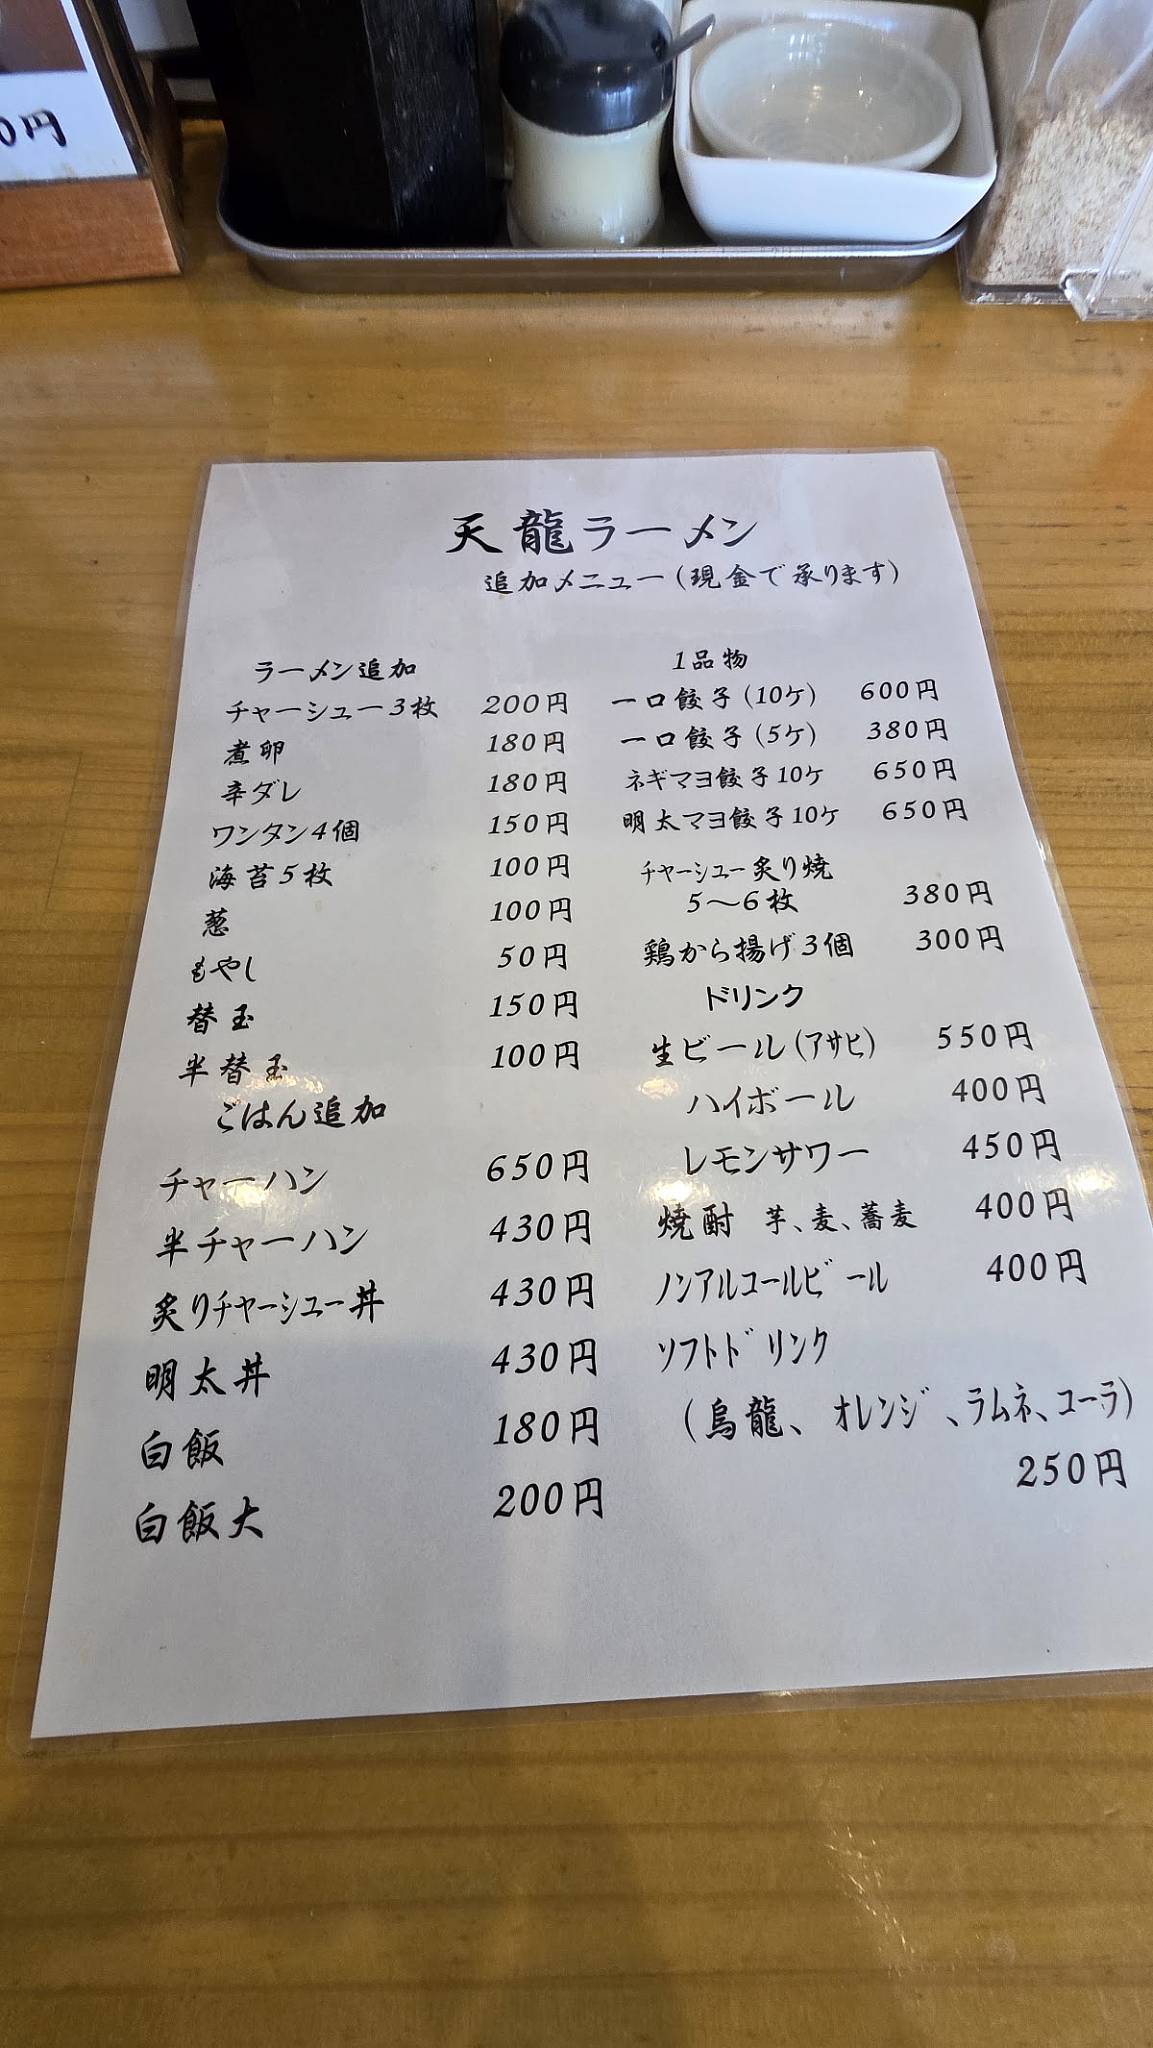 0円
天龍ラーメン
追加メニュー(現金で承ります)
ラーメン追加
チャーシュー3枚 200円
煮卵 180円
辛ダレ 180円
ワンタン4個 150円
海苔5枚 100円
葱 100円
もやし 50円
替玉 150円
半替玉 100円
ごはん追加
チャーハン 650円
半チャーハン 430円
炙りチャーシュー丼 430円
明太丼 430円
白飯 180円
白飯大 200円
1品物
一口餃子(10ケ) 600円
一口餃子(5ケ) 380円
ネギマヨ餃子10ケ 650円
明太マヨ餃子10ケ 650円
チャーシュー炙り焼
5〜6枚 380円
鶏から揚げ3個 300円
ドリンク
生ビール(アサヒ) 550円
ハイボール 400円
レモンサワー 450円
焼酎 芋、麦、蕎麦 400円
ノンアルコールビール 400円
ソフトドリンク
(烏龍、オレンジ、ラムネ、コーラ)
250円